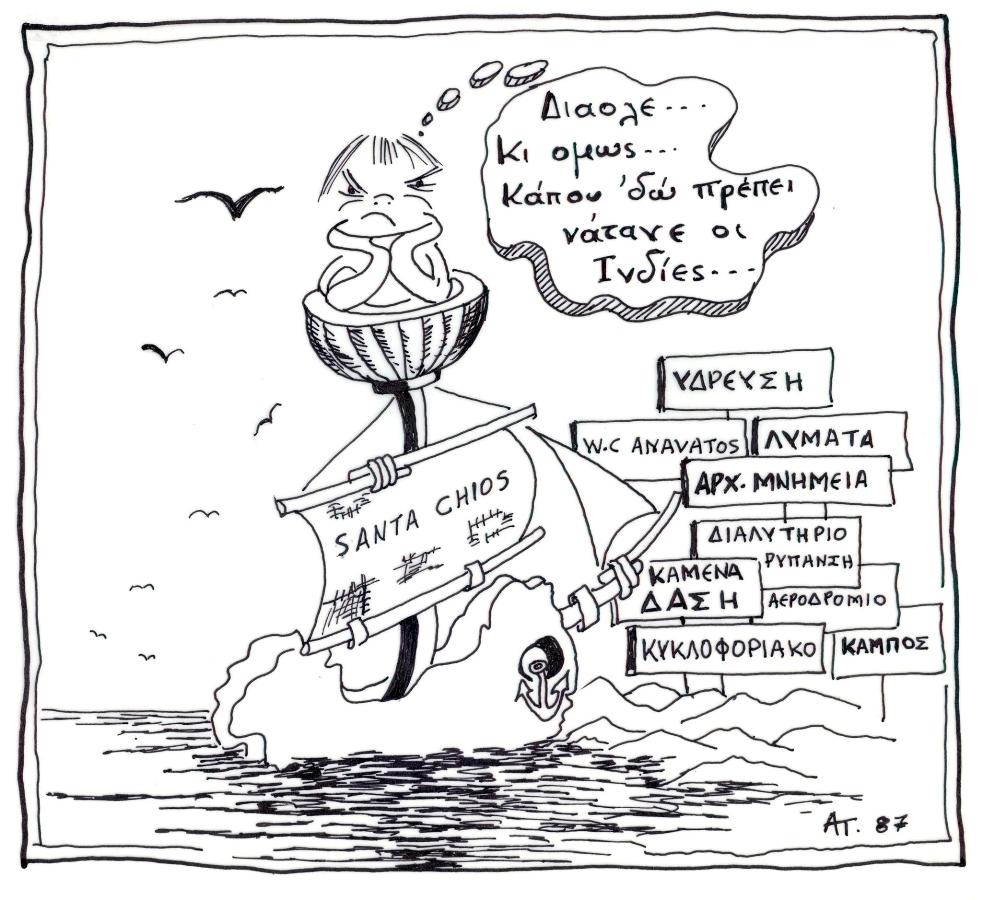 Διαολε...
Κι ομως...
Κάπου 'δώ πρέπει
νάτανε οι
Ινδίες...
SANTA CHIOS
ΥΔΡΕΥΣΗ
W.C ANAVATOS
ΛΥΜΑΤΑ
ΑΡΧ. ΜΝΗΜΕΙΑ
ΔΙΑΛΥΤΗΡΙΟ
ΡΥΠΑΝΣΗ
ΚΑΜΕΝΑ
ΔΑΣΗ
ΑΕΡΟΔΡΟΜΙΟ
ΚΥΚΛΟΦΟΡΙΑΚΟ
ΚΑΜΠΟΣ
ΑΤ. 87